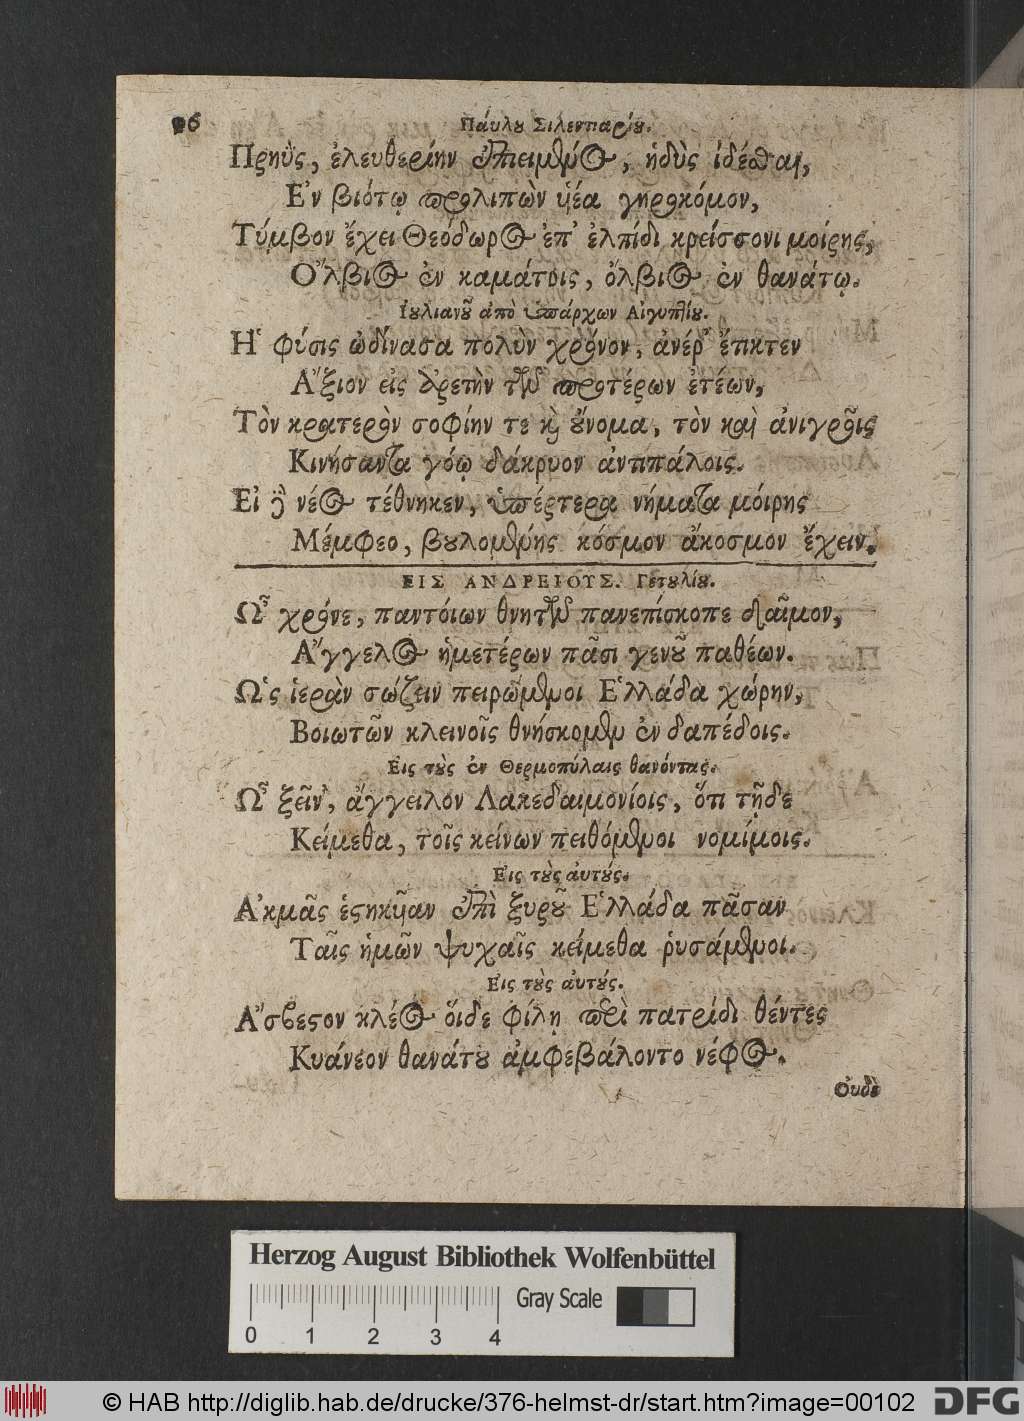 96
Παύλου Σιλεντιαρίου.
Πρηῢς, ἐλευθερίην ἐπιειμένος, ἡδὺς ἰδέσθαι,
Ἐν βιότῳ προλιπὼν υἱέα γηροκόμον,
Τύμβον ἔχει Θεόδωρος ἐπ' ἐλπίδι κρείσσονι μοίρης,
Ὄλβιος ἐν καμάτοις, ὄλβιος ἐν θανάτῳ.
Ἰουλιανοῦ ἀπὸ ὑπάρχων Αἰγυπτίου.
Ἡ φύσις ὠδίνασα πολὺν χρόνον, ἀνέρ' ἔτικτεν
Ἄξιον εἰς ἀρετὴν τῶν προτέρων ἐτέων,
Τὸν κρατερὸν σοφίην τε καὶ οὔνομα, τὸν καὶ ἀνιγροῖς
Κινήσαντα γόῳ δάκρυον ἀντιπάλοις.
Εἰ δὲ νέος τέθνηκεν, ὑπέρτερα νήματα μοίρης
Μέμφεο, βουλομένης κόσμον ἄκοσμον ἔχειν.
ΕΙΣ ΑΝΔΡΕΙΟΥΣ. Γετουλίου.
Ὦ χρόνε, παντοίων θνητῶν πανεπίσκοπε δαῖμον,
Ἄγγελος ἡμετέρων πᾶσι γενοῦ παθέων.
Ὡς ἱερὰν σώζειν πειρώμενοι Ἑλλάδα χώρην,
Βοιωτῶν κλεινοῖς θνήσκομεν ἐν δαπέδοις.
Εἰς τοὺς ἐν Θερμοπύλαις θανόντας.
Ὦ ξεῖν', ἄγγειλον Λακεδαιμονίοις, ὅτι τῇδε
Κείμεθα, τοῖς κείνων πειθόμενοι νομίμοις.
Εἰς τοὺς αὐτούς.
Ἀκμᾶς ἑστηκυῖαν ἐπὶ ξυροῦ Ἑλλάδα πᾶσαν
Ταῖς ἡμῶν ψυχαῖς κείμεθα ῥυσάμενοι.
Εἰς τοὺς αὐτούς.
Ἄσβεστον κλέος οἵδε φίλῃ περὶ πατρίδι θέντες
Κυάνεον θανάτου ἀμφεβάλοντο νέφος.
Οὐδὲ
Herzog August Bibliothek Wolfenbüttel
Gray Scale
0 1 2 3 4
© HAB http://diglib.hab.de/drucke/376-helmst-dr/start.htm?image=00102
DFG